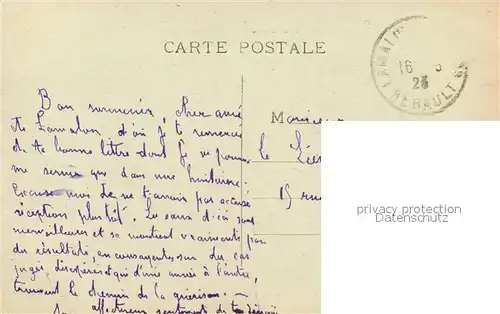 CARTE POSTALE
LAMALO
16
23
HERAULT
Bon souvenir, cher ami
de Lamalou d'où je te remercie
de ta bonne lettre dont je ne pouvais
me servir que dans une huitaine.
Excuse moi de ne t'avoir pas accusé
réception plus tôt. Les eaux d'ici sont
merveilleuses et se montrent vraiment par
des résultats, encourageants, sur des cas
jugés désespérés qui d'une année à l'autre,
trouvent le chemin de la guérison. —
affectueux sentiments de ton
Monsieur
le
15 rue
privacy protection
Datenschutz